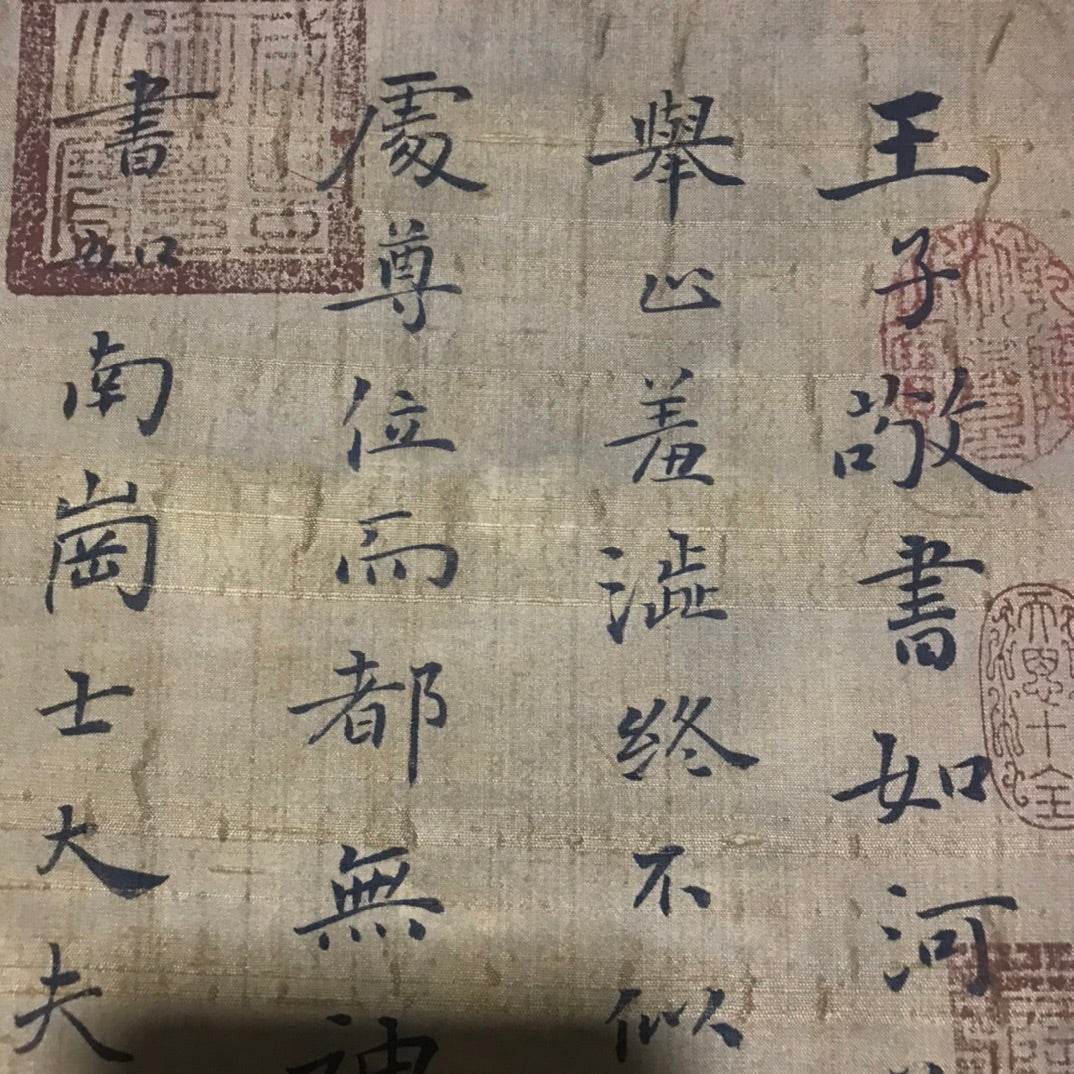 王子敬書如河
舉止羞澀終不似
處尊位而都無神
書如南崗士大夫